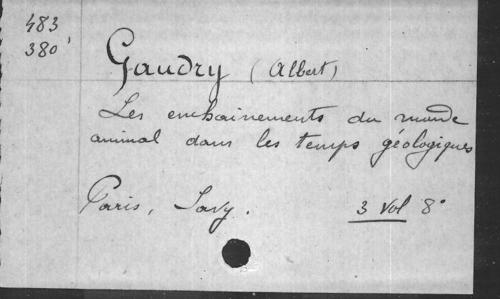 483
380'
Gaudry (Albert)
Les enchainements du monde
animal dans les temps géologiques
Paris, Savy. 3 Vol 8°